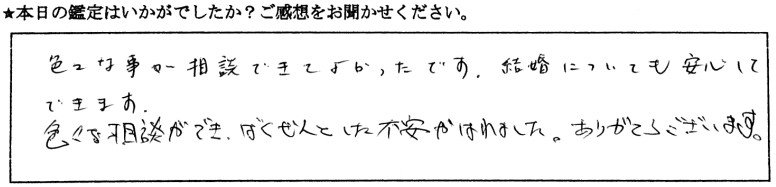 ★本日の鑑定はいかがでしたか？ご感想をお聞かせください。
色々な事が相談できてよかったです。結婚についても安心して
できます。
色々な相談ができ、ばくぜんとした不安がはれました。ありがとうございます。